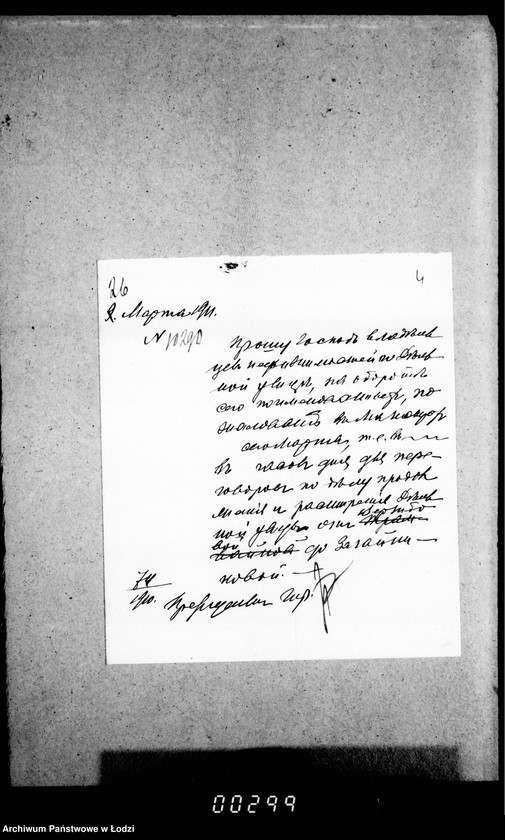 26
4
2. Марта 1911.
N 10290
Прошу Господъ владѣль
цевъ недвижимостей по Длин
ной улицѣ, на оборотѣ
сего поименованныхъ, по
жаловать въ Магистратъ
сего Марта, т.е. въ
въ часовъ дня для пере-
говоровъ по дѣлу продол
женія и расширенія Длин
ной улицы отъ
до Загайни-
ковой. —
74
1910.
Президентъ гор.
00299
Archiwum Państwowe w Łodzi